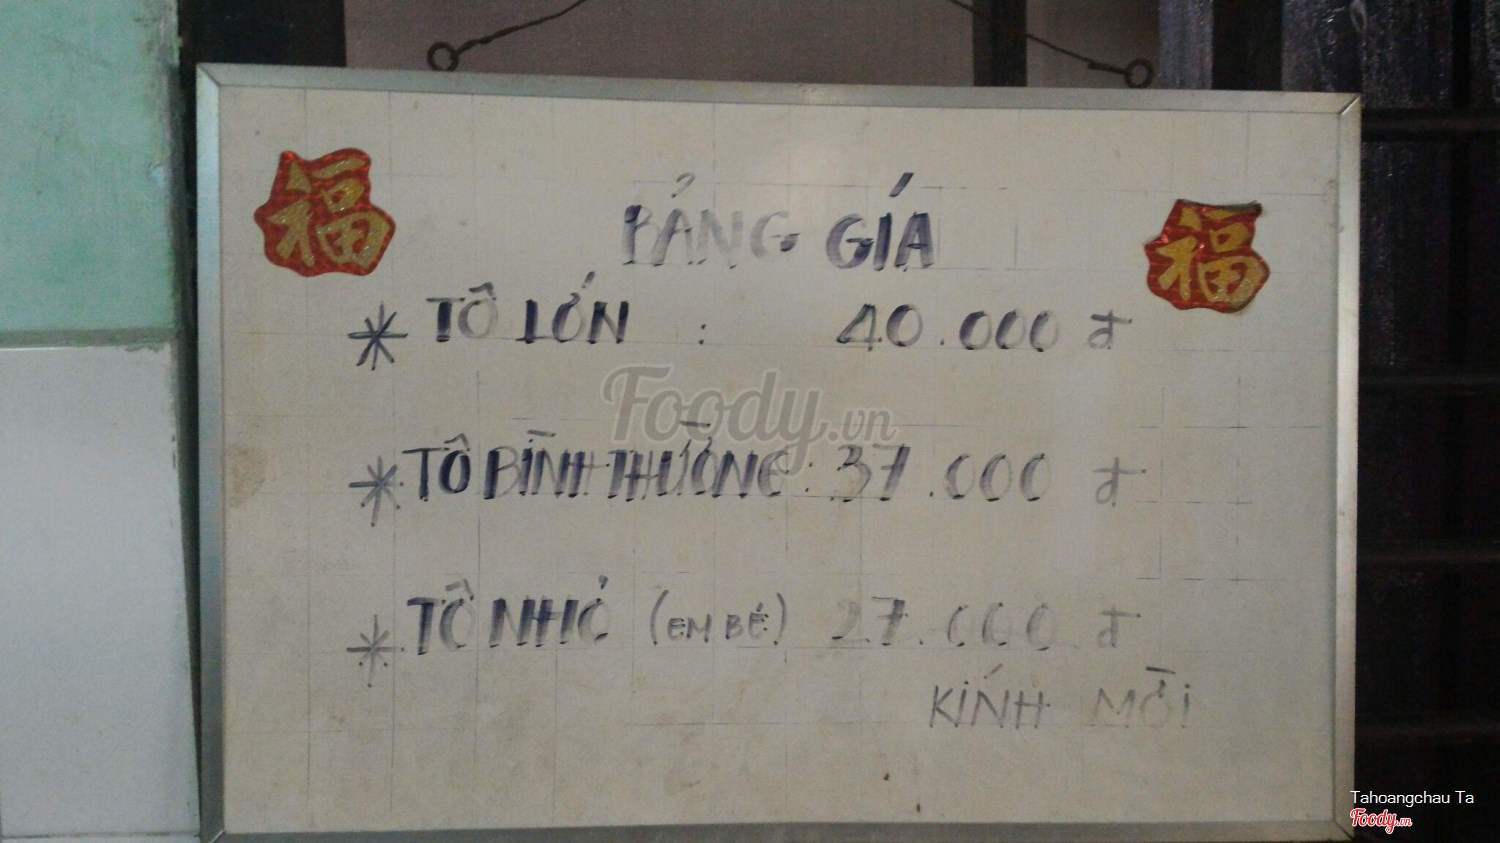 福
福
BẢNG GÍA
* TÔ LỚN : 40.000 đ
Foody.vn
* TÔ BÌNH THƯỜNG : 37.000 đ
* TÔ NHỎ (EM BÉ) 27.000 đ
KÍNH MỜI
Tahoangchau Ta
Foody.vn